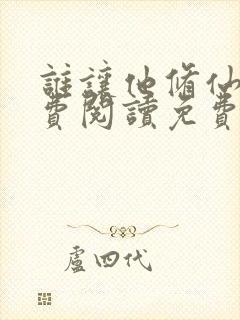 誰讓他脩仙
費閱讀免費
盧四代